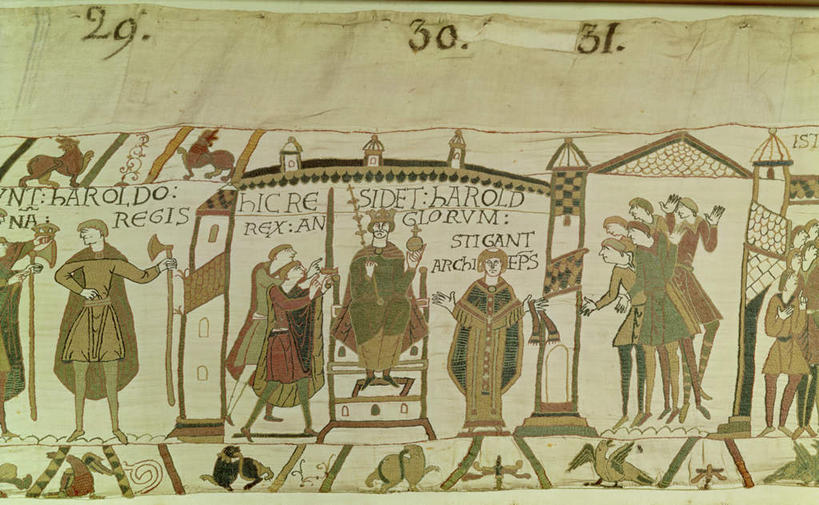 29.
30.
31.
VNT: hAROLDO:
NA: REGIS
hIC RESIDET: hAROLD
REX: ANGLORVM:
STIGANT
ARChIEPS
IST